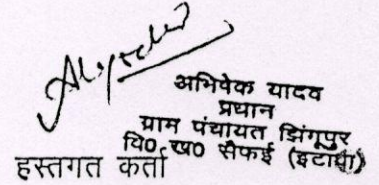 अभिषेक यादव
प्रधान
ग्राम पंचायत झिंगूपुर
वि0 ख0 सैफई (इटावा)
हस्तगत कर्ता